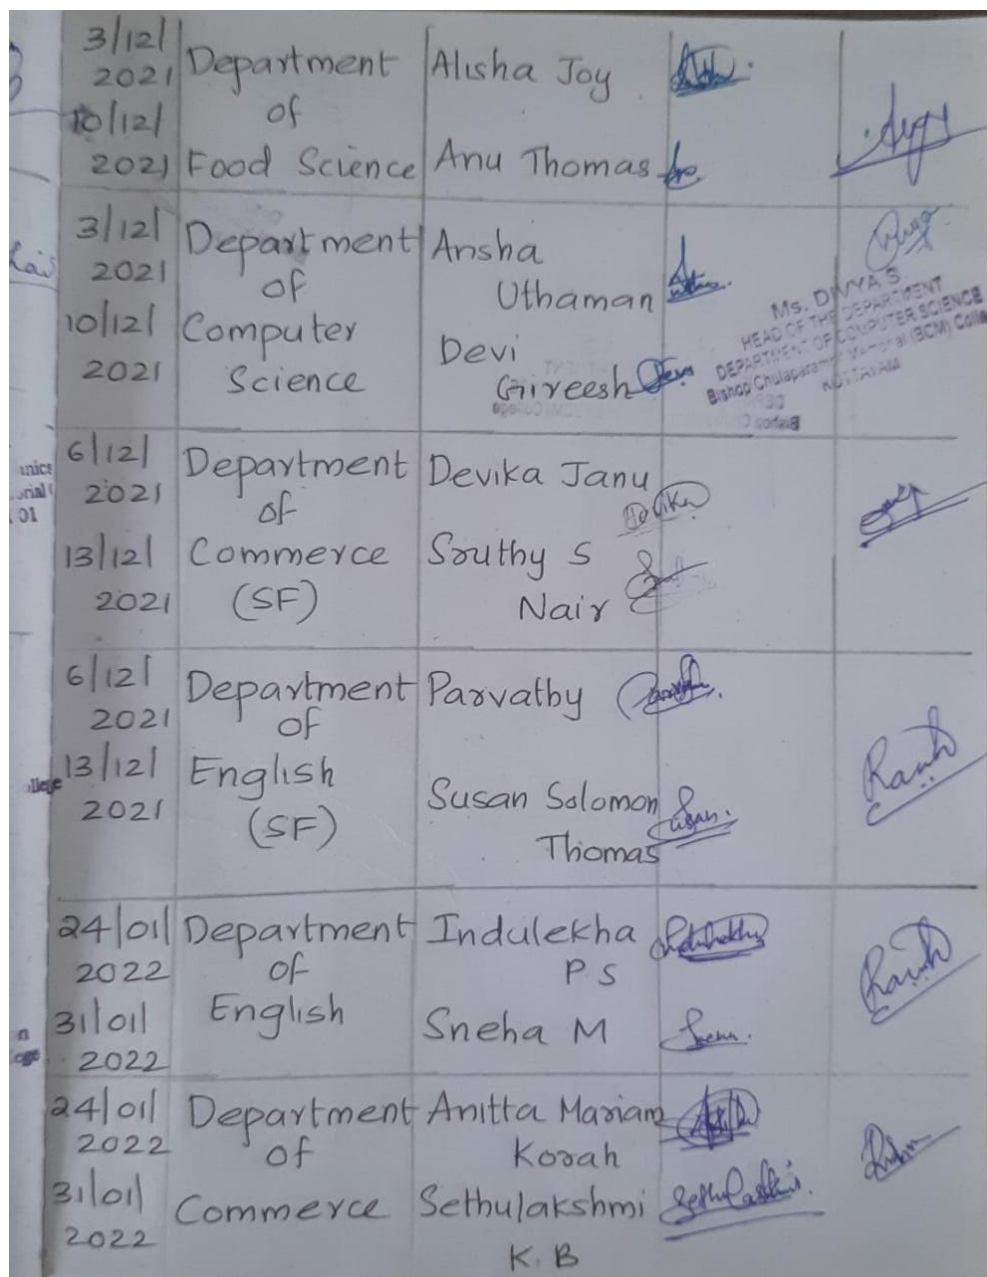 3/12/
2021
10/12/
2021
Department
of
Food Science
Alisha Joy
Anu Thomas
3/12/
2021
10/12/
2021
Department
of
Computer
Science
Ansha
Uthaman
Devi
Gireesh
Devi
Ms. DIVYA S
HEAD OF THE DEPARTMENT
DEPARTMENT OF COMPUTER SCIENCE
Bishop Chulaparambil Memorial (BCM) Colle
KOTTAYAM
6/12/
2021
13/12/
2021
Department
of
Commerce
(SF)
Devika Janu
Devika
Sruthy S
Nair
6/12/
2021
13/12/
2021
Department
of
English
(SF)
Parvathy
Susan Solomon
Thomas
Susan.
24/01/
2022
31/01/
2022
Department
of
English
Indulekha
P S
Sneha M
Sneha.
24/01/
2022
31/01/
2022
Department
of
Commerce
Anitta Mariam
Korah
Sethulakshmi
K. B
Sethulakshmi.